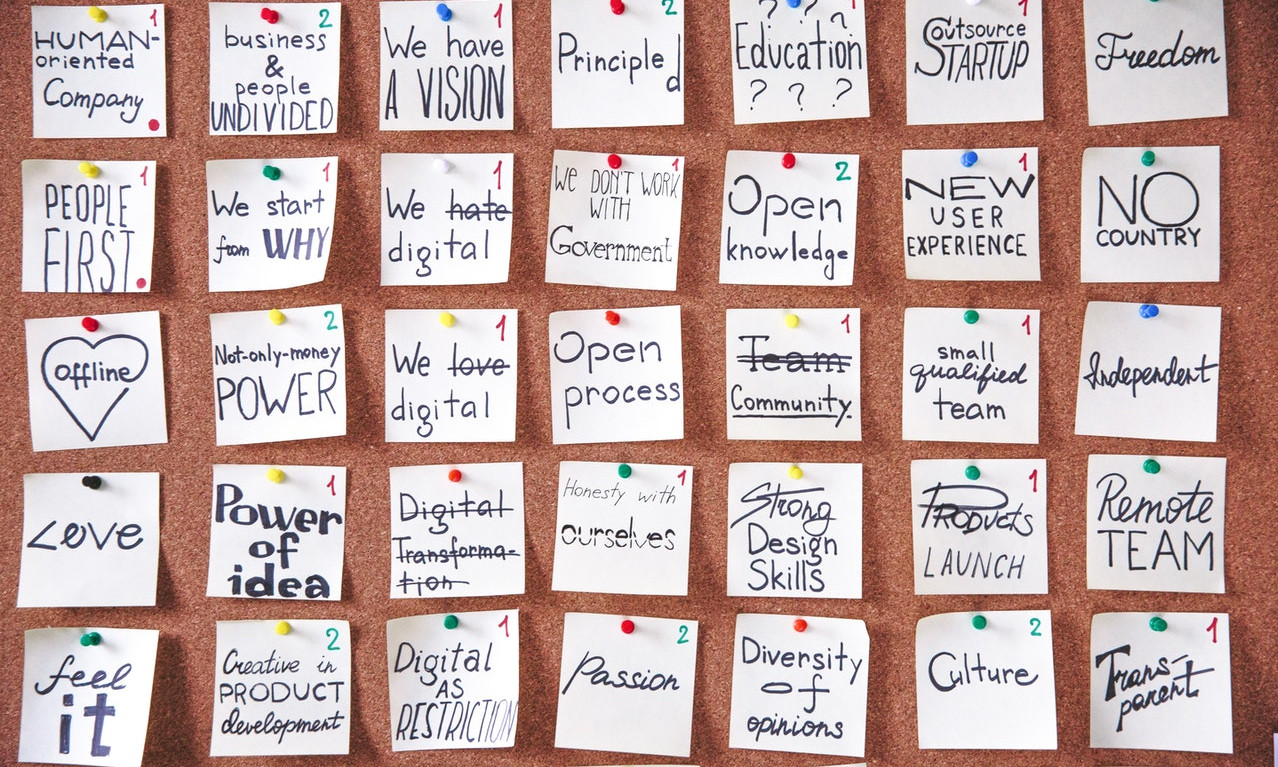 HUMAN-
oriented
Company
2
business
&
people
UNDIVIDED
1
We have
A VISION
2
Principled
? ? ?
Education
? ? ?
1
Outsource
STARTUP
Freedom
1
PEOPLE
FIRST.
1
We start
from WHY
1
We hate
digital
1
We DON'T WORK
WITH
Government
2
Open
knowledge
1
NEW
USER
EXPERIENCE
NO
COUNTRY
offline
2
Not-only-money
POWER
1
We love
digital
Open
process
1
Team
Community.
1
small
qualified
team
Independent
Love
1
Power
of
idea
Digital
Transforma-
tion
1
Honesty with
ourselves
Strong
Design
Skills
1
Products
LAUNCH
Remote
TEAM
feel
it
2
Creative in
PRODUCT
development
1
Digital
AS
RESTRICTION
2
Passion
Diversity
of
opinions
2
Culture
1
Trans-
parent